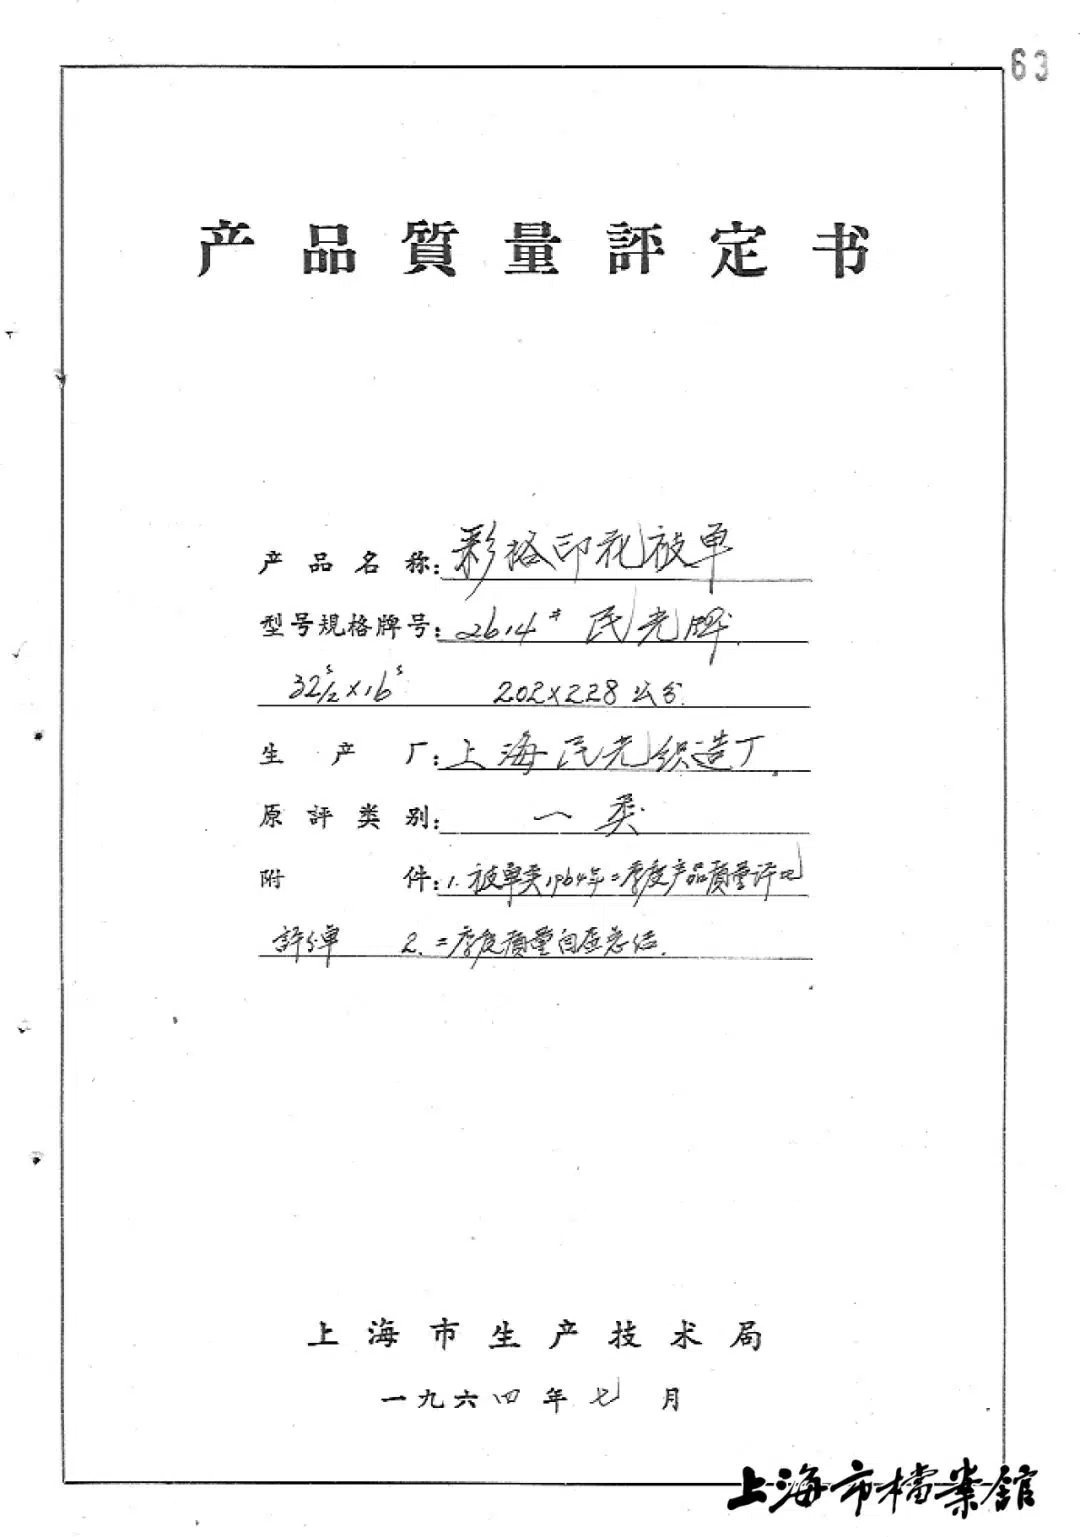 63
产品質量評定书
产品名称:彩格印花被单
型号規格牌号:2614# 民光牌.
32s/2×16s 202×228公分.
生产厂:上海民光织造厂.
原評类别:一类
附件:1.被单类1964年二季度产品質量评比
評分单 2.二季度質量自查总结.
上海市生产技术局
一九六四年七月
上海市檔案館